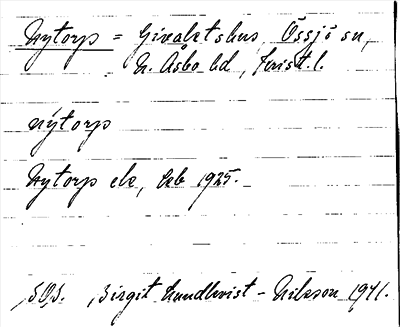 Nytorp = Givaktshus, Össjö sn,
N. Åsbo hd, Krist. l.
nýtorp
Nytorp ek, 1925.
SOS. Birgit Lundkvist-Nilsson 1941.